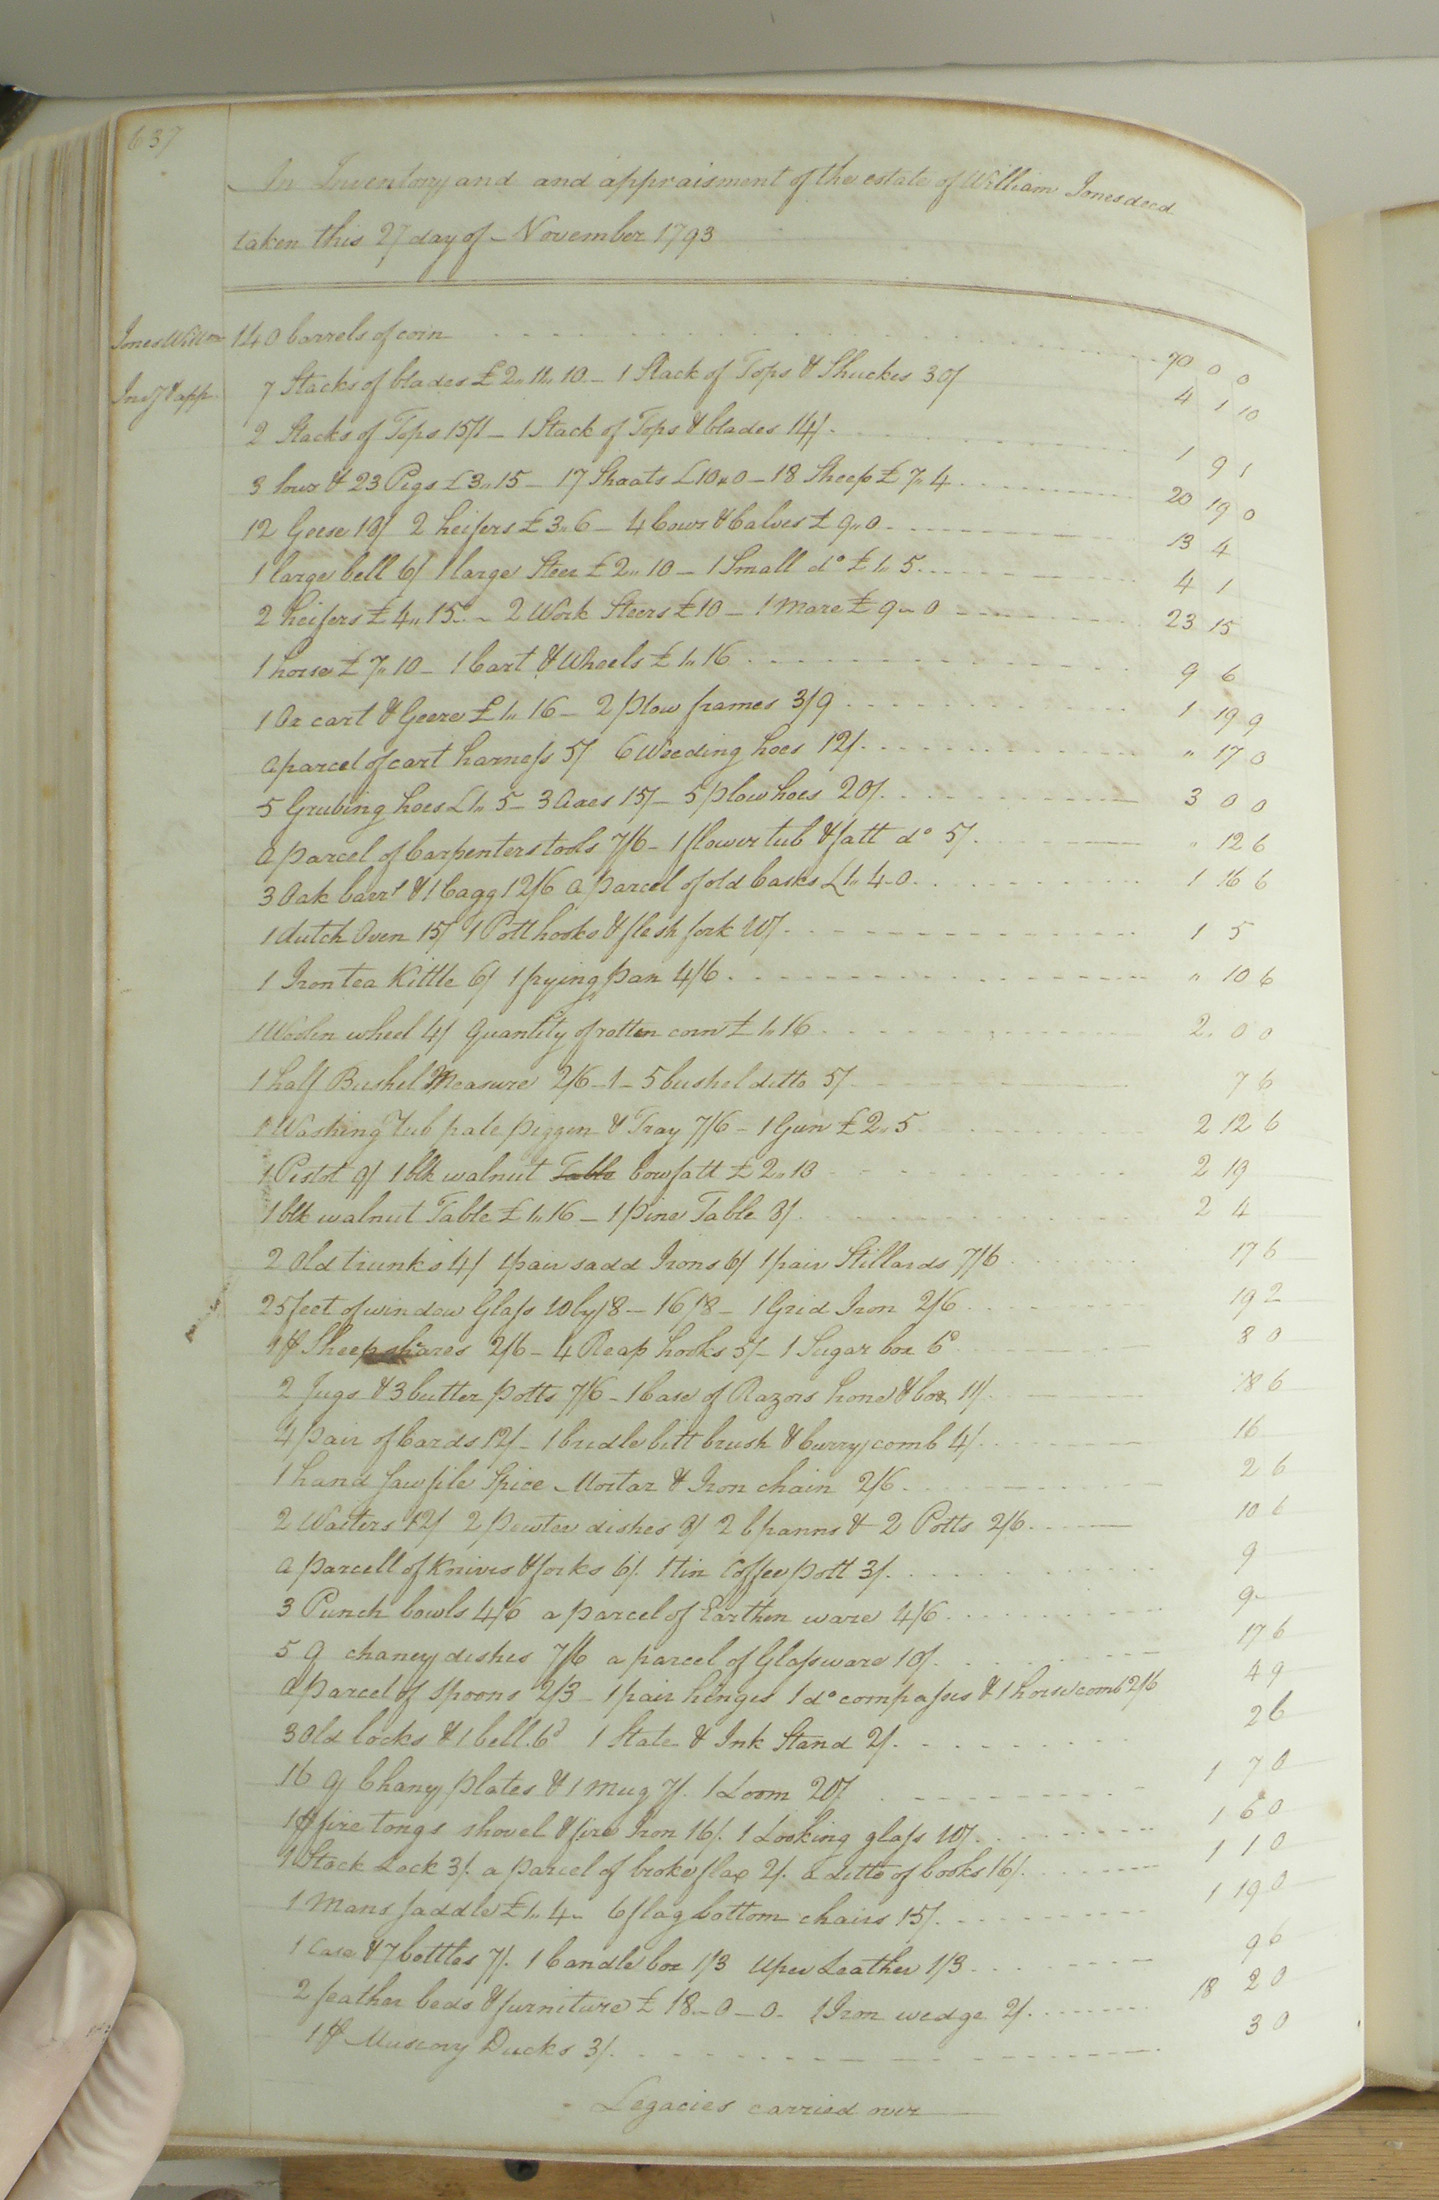 637
An Inventory and and appraisment of the estate of William Jones decd
taken this 27 day of November 1793
Jones Willm
Invy & app.
140 barrels of corn 70 0 0
7 Stacks of blades £2.,11.,10 - 1 Stack of Tops & Shuckes 30/ 4 1 10
2 Stacks of Tops 15/1 - 1 Stack of Tops & blades 14/. 1 9 1
3 Sows & 23 Pigs £3.,15 - 17 Shoats £10.,0 - 18 Sheep £7.,4 20 19 0
12 Geese 18/ 2 heifers £3.,6 - 4 Cows & Calves £9.,0 13 4
1 large bell 6/ 1 large Steer £2.,10 - 1 Small do £1.,5 4 1
2 heifers £4.,15. - 2 Work Steers £10 - 1 Mare £9 - 0 23 15
1 horse £7.,10 - 1 Cart & Wheels £1.,16 9 6
1 Ox cart & Geere £1.,16 - 2 plow frames 3/9 1 19 9
a parcel of cart harness 5/ 6 Weeding hoes 12/. " 17 0
5 Grubing hoes £1.,5 - 3 Axes 15/ - 5 plow hoes 20/. 3 0 0
A parcel of Carpenters tools 7/6 - 1 flower tub & fatt do 5/. " 12 6
3 Oak barrs & 1 Cagg 12/6 a parcel of old Casks £1.,4.0 1 16 6
1 dutch Oven 15/ 1 Potthooks & flesh fork 10/. 1 5
1 Iron tea Kittle 6/ 1 frying pan 4/6 " 10 6
1 Woolen wheel 4/ Quantity of rotten corn £1.,16 2. 0 0
1 half Bushel Measure 2/6 - 1 - 5 bushel ditto 5/ 7 6
1 Washing Tub pale piggen & Tray 7/6 - 1 Gun £2.,5 2 12 6
1 Pistol 9/ 1 blk walnut Table bowfatt £2.,10 2 19
1 blk walnut Table £1.,16 - 1 pine Table 8/. 2 4
2 Old trunks 4/ 1 pair sadd Irons 6/ 1 pair Stillards 7/6 17 6
25 feet of window Glass 10 by 8 - 16/8 - 1 Grid Iron 2/6 19 2
1 pr Sheep shares 2/6 - 4 Reap hooks 5/ - 1 Sugar box 6d 8 0
2 Jugs & 3 butter potts 7/6 - 1 Case of Razors hone & box 11/. 18 6
4 pair of Cards 12/ - 1 bridle bitt brush & Curry comb 4/. 16
1 hand saw file Spice Mortar & Iron chain 2/6. 2 6
2 Waiters 2/ 2 pewter dishes 8/ 2 panns & 2 Potts 2/6 10 6
a parcell of Knives & forks 6/. 1 tin Coffee pott 3/. 9
3 Punch bowls 4/6 a parcel of Earthen ware 4/6 9
5 Q chaney dishes 7/6 a parcel of Glassware 10/. 17 6
A parcel of Spoons 2/3 - 1 pair hinges 1 do compasses & 1 horse comb 2/6 4 9
3 Old locks & 1 bell 6d 1 Slate & Ink Stand 2/. 2 6
16 Q Chany plates & 1 Mug 7/. 1 Loom 20/ 1 7 0
1 pr fire tongs shovel & fire Iron 16/. 1 Looking glass 10/. 1 6 0
1 Stock Lock 3/. a parcel of broke flax 2/. a ditto of books 16/. 1 1 0
1 Mans saddle £1.,4 - 6 flag bottom chairs 15/. 1 19 0
1 Case & 7 bottles 7/. 1 Candle box 1/3 Uper Leather 1/3 9 6
2 feather beds & furniture £18 - 0 - 0 - 1 Iron wedge 2/. 18 2 0
1 pr Muscovy Ducks 3/. 3 0
Legacies carried over